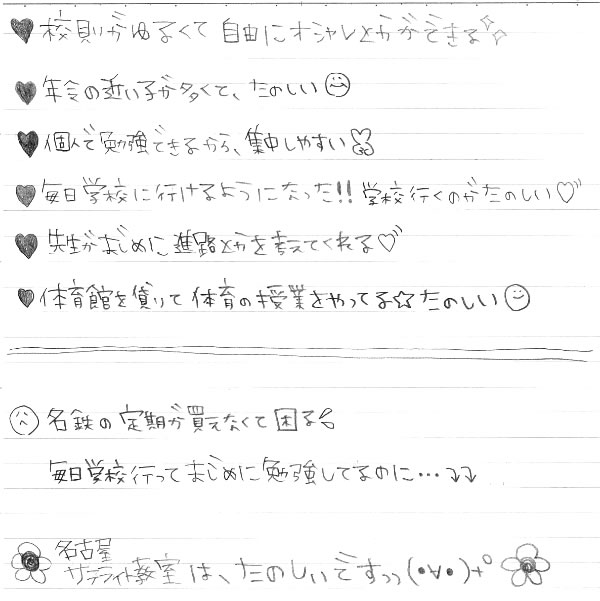 ♥校則がゆるくて自由にオシャレとかができる☆☆
♥年令の近い子が多くて、たのしい
♥個人で勉強できるから、集中しやすい
♥毎日学校に行けるようになった!!学校行くのがたのしい♡
♥先生がまじめに進路とかを考えてくれる♡
♥体育館を貸りて体育の授業をやってる☆たのしい
名鉄の定期が買えなくて困る
毎日学校行ってまじめに勉強してるのに…↴↴
名古屋
サテライト教室は、たのしいですっっ(•∀•)+°